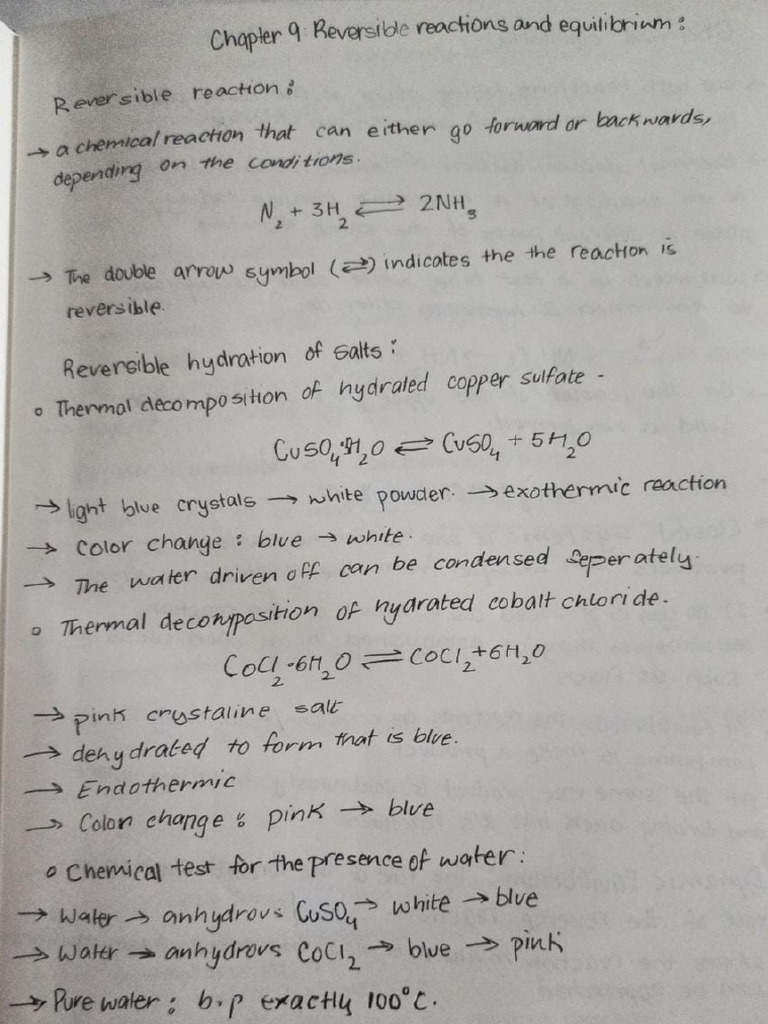 Chapter 9: Reversible reactions and equilibrium:
Reversible reaction:
→ a chemical reaction that can either go forward or backwards,
depending on the conditions.
N₂ + 3H₂ ⇌ 2NH₃
→ The double arrow symbol (⇌) indicates the the reaction is
reversible.
Reversible hydration of salts:
o Thermal decomposition of hydraled copper sulfate -
CuSO₄·5H₂O ⇌ CuSO₄ + 5H₂O
→ light blue crystals → white powder. → exothermic reaction
→ color change : blue → white.
→ The water driven off can be condensed seperately.
o Thermal decomposition of hydrated cobalt chloride.
CoCl₂·6H₂O ⇌ COCl₂+6H₂O
→ pink crystaline salt
→ dehydrated to form that is blue.
→ Endothermic
→ Colon change : pink → blue
o Chemical test for the presence of water:
→ Water → anhydrous CuSO₄ → white → blue
→ Water → anhydrous COCl₂ → blue → pink
→ Pure water : b.p exactly 100°C.